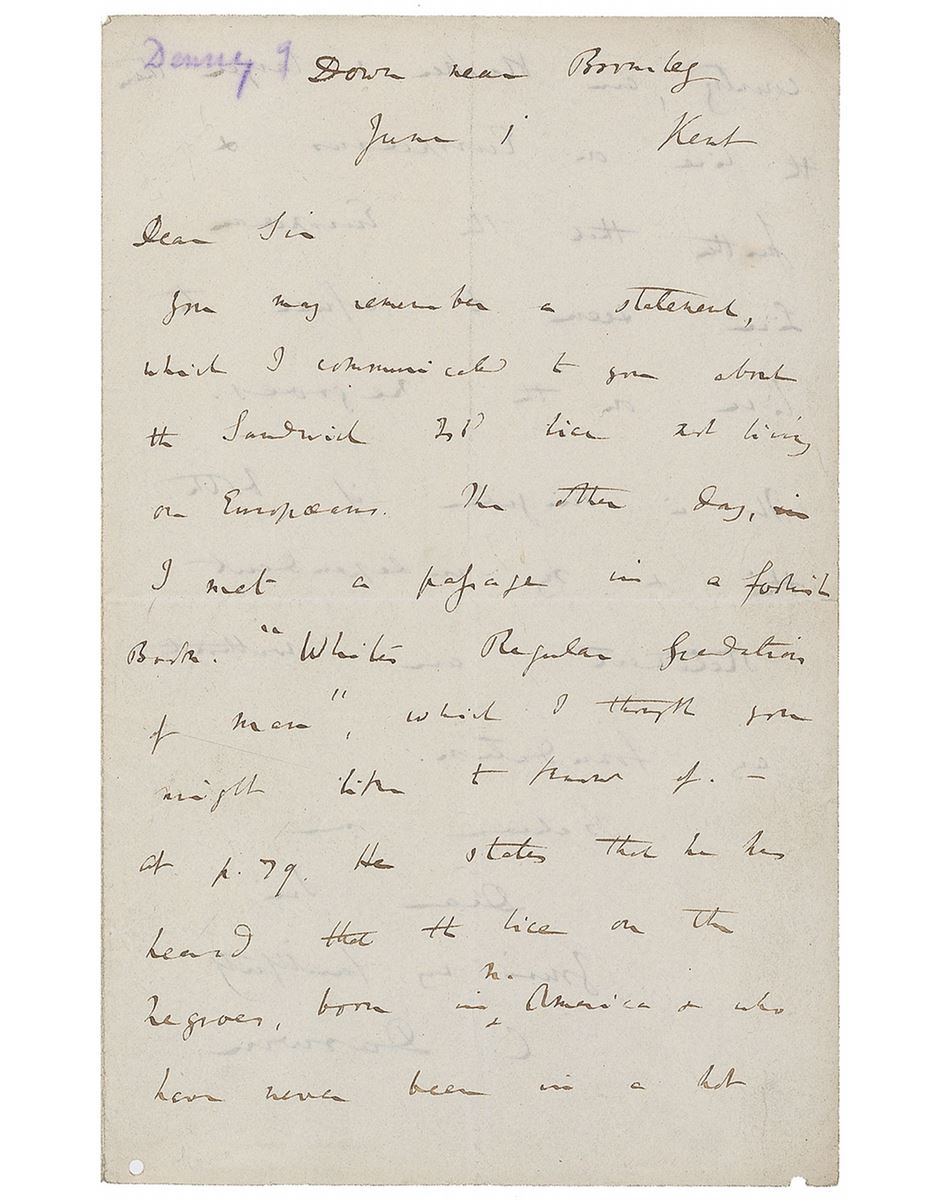 Denny 9
Down near Bromley
June 1 Kent
Dear Sir
You may remember a statement,
which I communicated to you about
the Sandwich Isd lice not living
on Europæans. The other day, in
I met a passage in a foolish
Book. "White's Regular Gradation
of man", which I thought you
might like to know of. —
at p. 79. He states that he has
heard that the lice on the
negroes, born in N. America & who
have never been in a hot